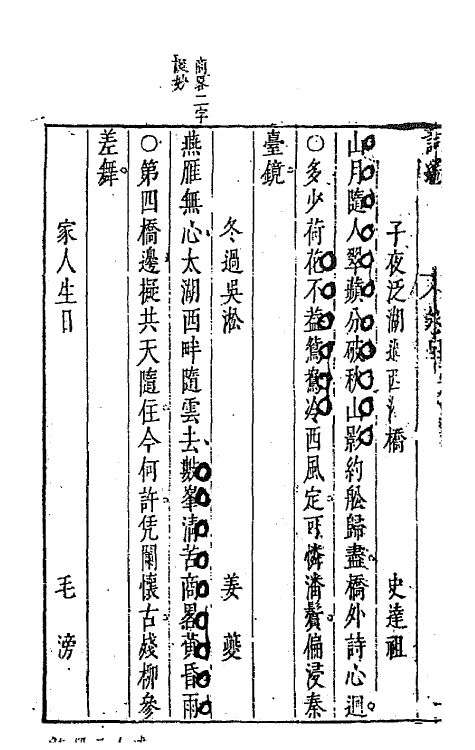 商畧二字
誕妙
子夜泛湖 橋 史達祖
山月隨人翠蘋分破秋山影約舩歸盡橋外詩心迥
○多少荷花不葢鴛鴦冷西風定可憐潘鬢偏浸秦
臺鏡
冬過吳淞 姜夔
燕雁無心太湖西畔隨雲去數峯清苦商畧黃昏雨
○第四橋邊擬共天隨住今何許凭闌懷古殘柳參
差舞
家人生日 毛滂